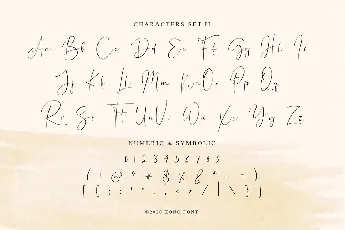 CHARACTERS SET II
Aa Bb Cc Dd Ee Ff Gg Hh Ii
Jj Kk Ll Mm Nn Oo Pp Qq
Rr Ss Tt Uu Vv Ww Xx Yy Zz
NUMERIC & SYMBOLIC
0 1 2 3 4 5 6 7 8 9
©2020 KONG FONT